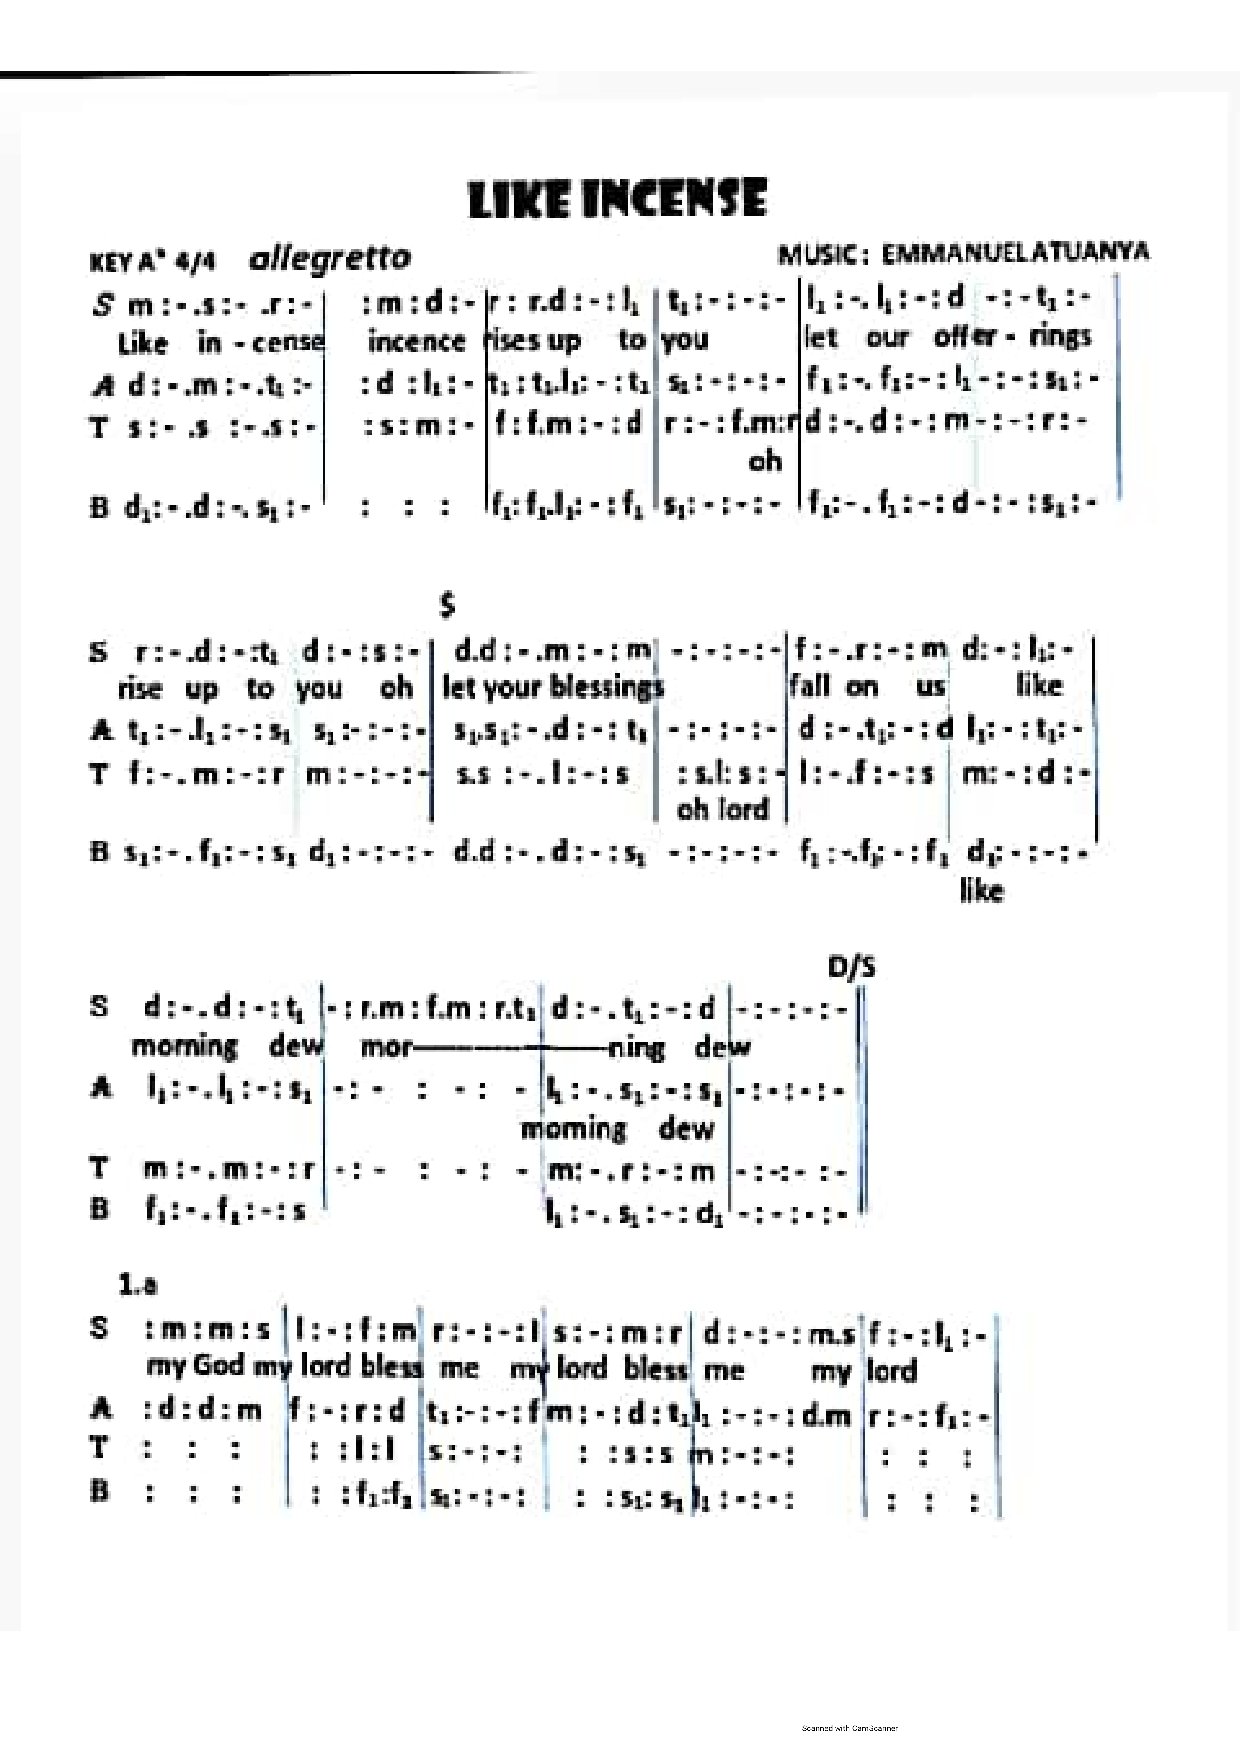 LIKE INCENSE
KEY Aᵇ 4/4 allegretto MUSIC: EMMANUEL ATUANYA
S m :- .s :- .r :- | : m : d :- | r : r.d :- : l₁ | t₁ :- :- :- | l₁ :-. l₁ :- : d - :- t₁ :- |
Like in - cense incence rises up to you let our offer - rings
A d :- .m :- .t₁ :- : d : l₁ :- | t₁ : t₁.l₁ :- : t₁ s₁ :- :- :- f₁ :-. f₁ :- : l₁ - :- : s₁ :-
T s :- .s :- .s :- : s : m :- f : f.m :- : d r :- : f.m : r d :-. d :- : m - :- : r :-
oh
B d₁ :- .d :-. s₁ :- : : : | f₁ : f₁.l₁ :- : f₁ s₁ :- :- :- f₁ :-. f₁ :- : d - :- : s₁ :-
$
S r :- .d :- : t₁ d :- : s :- | d.d :- .m :- : m - :- :- :- | f :- .r :- : m d :- : l₁ :- |
rise up to you oh let your blessings fall on us like
A t₁ :- .l₁ :- : s₁ s₁ :- :- :- s₁.s₁ :- .d :- : t₁ - :- :- :- d :- .t₁ :- : d l₁ :- : t₁ :-
T f :- . m :- : r m :- :- :- s.s :- . l :- : s : s.l : s :- l :- .f :- : s m :- : d :-
oh lord
B s₁ :- . f₁ :- : s₁ d₁ :- :- :- d.d :- . d :- : s₁ - :- :- :- f₁ :-.f₁ :- : f₁ d₁ :- :- :-
like
D/S
S d :- . d :- : t₁ | - : r.m : f.m : r.t₁ | d :- . t₁ :- : d | - :- :- :- ||
morning dew mor——————ning dew
A l₁ :- . l₁ :- : s₁ - :- : - : - l₁ :- . s₁ :- : s₁ - :- :- :-
morning dew
T m :- . m :- : r - :- : - : - m :- . r :- : m - :- :- :-
B f₁ :- . f₁ :- : s l₁ :- . s₁ :- : d₁ - :- :- :-
1.a
S : m : m : s | l :- : f : m | r :- :- : l | s :- : m : r | d :- :- : m.s | f :- : l₁ :- |
my God my lord bless me my lord bless me my lord
A : d : d : m f :- : r : d t₁ :- :- : f m :- : d : t₁ l₁ :- :- : d.m r :- : f₁ :-
T : : : : : l : l s :- :- : : : s : s m :- :- : : : :
B : : : : : f₁ : f₁ s₁ :- :- : : : s₁ : s₁ l₁ :- :- : : : :
Scanned with CamScanner